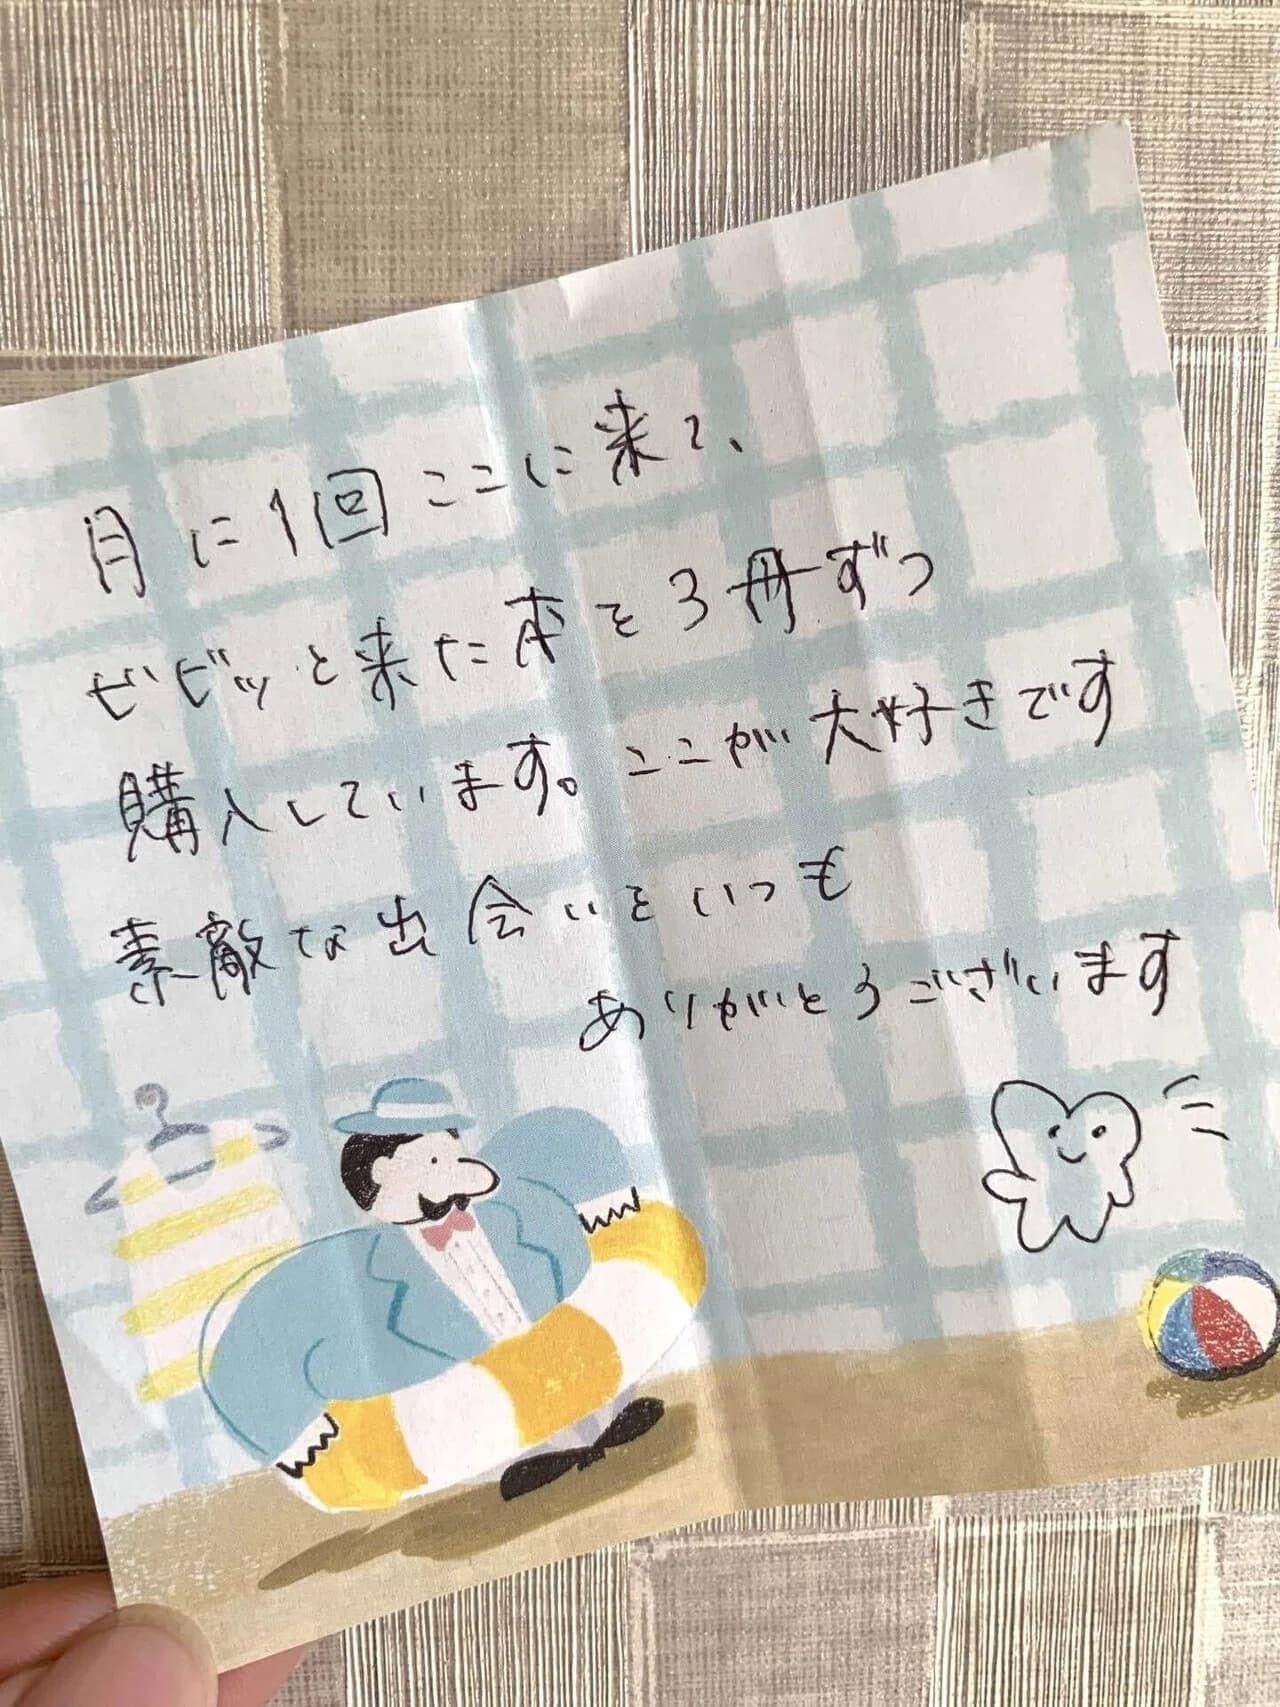 月に1回ここに来て、
ビビッと来た本を3冊ずつ
購入しています。ここが大好きです
素敵な出会いをいつも
ありがとうございます